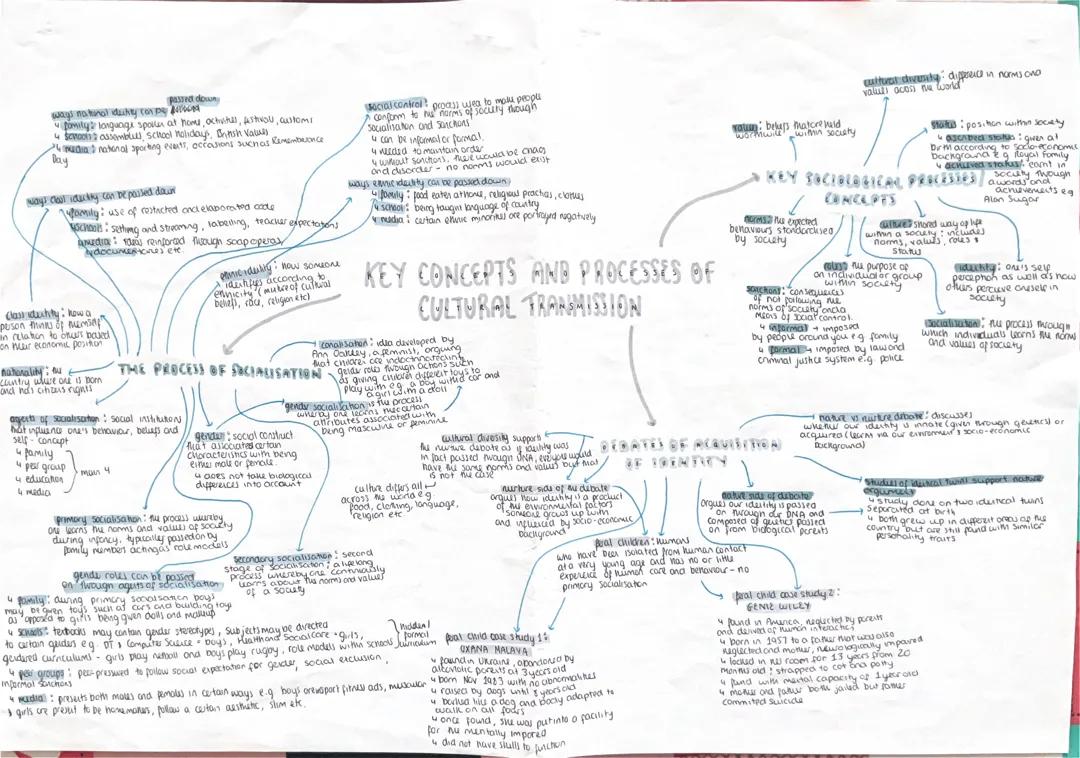 KEY CONCEPTS AND PROCESSES OF
CULTURAL TRANSMISSION
ways national identity can be passed down
↳ family: language spoken at home, activities, festivals, customs
↳ schools: assemblies, school holidays, British values
↳ media: national sporting events, occasions such as Remembrance
Day
social control: process used to make people
conform to the norms of society though
socialisation and sanctions
↳ can be informal or formal.
↳ needed to maintain order
↳ without sanctions, there would be chaos
and disorder - no norms would exist
ways class identity can be passed down
↳ family: use of restricted and elaborated code
↳ schools: setting and streaming, labelling, teacher expectations
↳ media: ideas reinforced through soap operas,
documentaries etc.
ways ethnic identity can be passed down
↳ family: food eaten at home, religious practices, clothes
↳ school: being taught language of country
↳ media: certain ethnic minorities are portrayed negatively
ethnic identity: how someone
identifies according to
ethnicity (mixture of cultural
beliefs, race, religion etc)
class identity: how a
person thinks of themself
in relation to others based
on their economic position
THE PROCESS OF SOCIALISATION
nationality: the
country where one is born
and has citizens rights
canalisation: idea developed by
Ann Oakley, a feminist, arguing
that children are indoctrinated into
gender roles through actions such
as giving children different toys to
play with e.g. a boy with a car and
a girl with a doll
gender socialisation is the process
whereby one learns the certain
attributes associated with
being masculine or feminine
agents of socialisation: social institutions
that influence one's behaviour, beliefs and
self-concept
↳ family
↳ peer group
↳ education
↳ media
main 4
gender: social construct
that associated certain
characteristics with being
either male or female.
↳ does not take biological
differences into account
primary socialisation: the process whereby
one learns the norms and values of society
during infancy, typically passed on by
family members acting as role models
secondary socialisation: second
stage of socialisation; a lifelong
process whereby one continuously
learns about the norms and values
of a society
gender roles can be passed
on through agents of socialisation
↳ family: during primary socialisation boys
may be given toys such as cars and building toys
as opposed to girls being given dolls and makeup
↳ schools: textbooks may contain gender stereotypes, subjects may be directed
to certain genders e.g. DT & Computer Science - boys, Health and Social Care - girls,
gendered curriculums - girls play netball and boys play rugby, role models within schools
hidden/
formal
curriculum
↳ peer groups: peer-pressured to follow social expectation for gender, social exclusion,
informal sanctions
↳ media: presents both males and females in certain ways e.g. boys are sport fitness ads, muscular
& girls are present to be homemakers, follow a certain aesthetic, slim etc.
KEY SOCIOLOGICAL PROCESSES/
CONCEPTS
cultural diversity: difference in norms and
values across the world
values: beliefs that are held
worthwhile within society
status: position within society
↳ ascribed status: given at
birth according to socio-economic
background e.g Royal Family
↳ achieved status: earnt in
society through
awards and
achievements e.g
Alan Sugar
norms: the expected
behaviours standardised
by society
culture: shared way of life
within a society: includes
norms, values, roles &
status
roles: the purpose of
an individual or group
within society
identity: one's self
perception as well as how
others percieve oneself in
society
sanctions: consequences
of not following the
norms of society and a
means of social control.
↳ informal → imposed
by people around you e.g family
↳ formal → imposed by law and
criminal justice system e.g. police
socialisation: the process through
which individuals learns the norms
and values of society
DEBATES OF ACQUISITION
OF IDENTITY
nature vs nurture debate: discusses
whether our identity is innate (given through genetics) or
acquired (learn via our enviroment & socio-economic
background)
cultural diversity supports
the nurture debate as if identity was
in fact passed through DNA, everyone would
have the same norms and values but that
is not the case
culture differs all
across the world e.g.
food, clothing, language,
religion etc.
nurture side of the debate
argues how identity is a product
of the environmental factors
someone grows up with
and influenced by socio-economic
background
nature side of debate
argues our identity is passed
on through our DNA and
composed of genetics passed
on from biological parents
studies of identical twins support nature
arguments
↳ study done on two identical twins
separated at birth
↳ both grew up in different areas of the
country but are still found with similar
personality traits
feral children: humans
who have been isolated from human contact
at a very young age and has no or little
experience of human care and behaviour - no
primary socialisation
feral child case study 1:
OXANA MALAYA
↳ found in Ukraine, abandoned by
alcoholic parents at 3 years old
↳ born Nov 1983 with no abnormalities
↳ raised by dogs until 8 years old
↳ barked like a dog and body adapted to
walk on all fours
↳ once found, she was put into a facility
for the mentally impared
↳ did not have skills to function
feral child case study 2:
GENIE WILEY
↳ found in America, neglected by parents
and deprived of human interaction
↳ born in 1957 to a father that was also
neglected and mother, neurologically impaired
↳ locked in her room for 13 years from 20
months old; strapped to cot and potty
↳ found with mental capacity of 1 year old
↳ mother and father both jailed but father
commited suicide